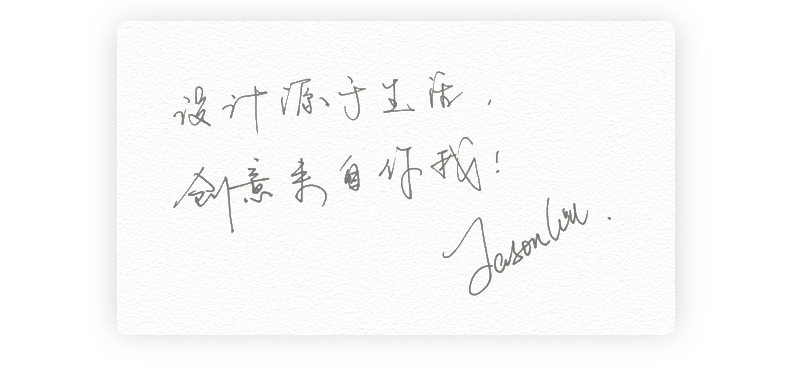 设计源于生活，
创意来自你我！
Jason Liu.